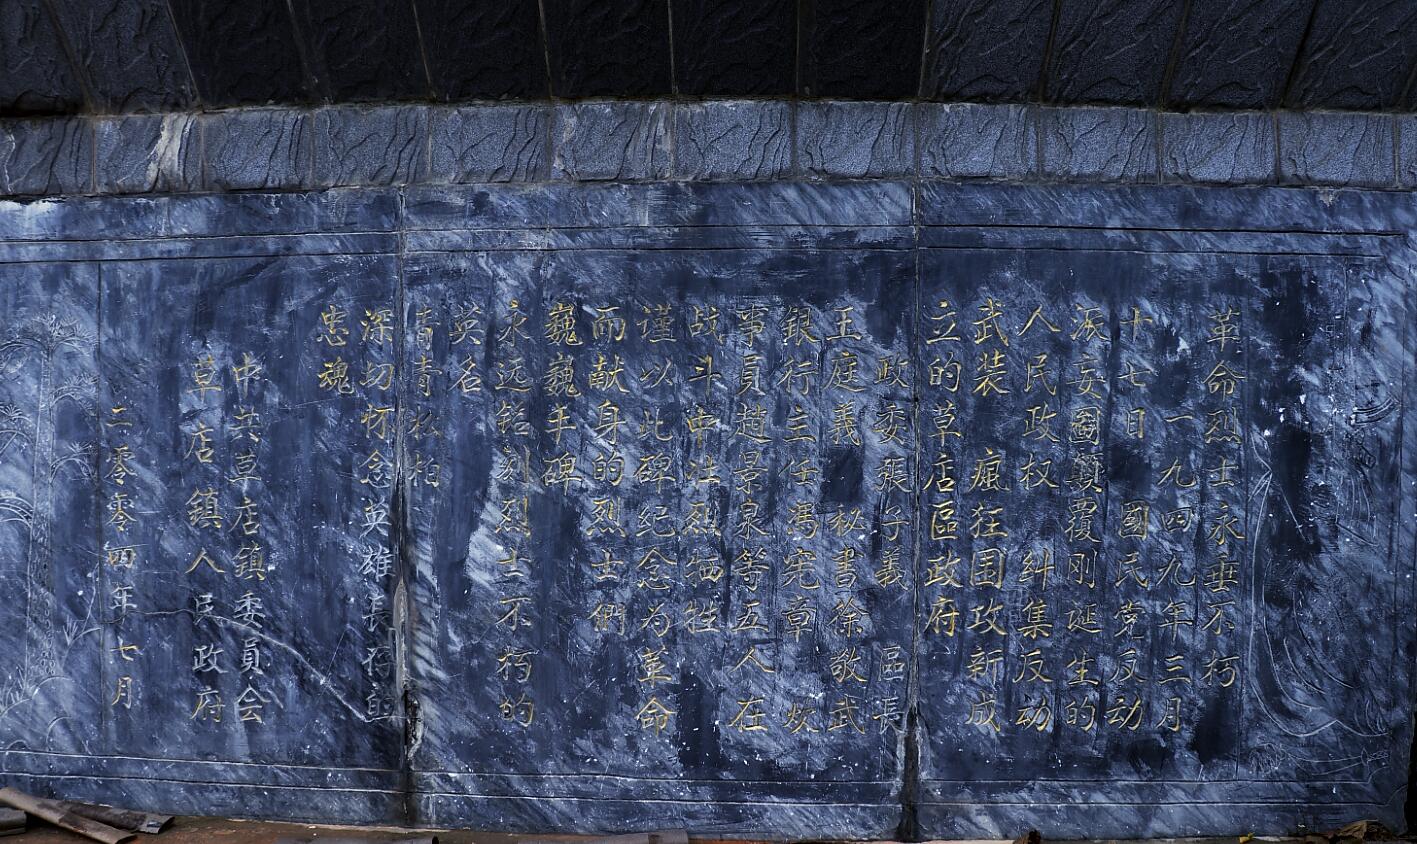 革命烈士永垂不朽
一九四九年三月
十七日 國民党反动
派妄圖顛覆刚诞生的
人民政权 纠集反动
武装 瘋狂围攻新成
立的草店區政府
政委張子義 區長
王庭義 秘書徐敬武
銀行主任馮宪章 炊
事員趙景泉等五人在
战斗中壮烈牺牲
谨以此碑纪念为革命
而献身的烈士們
巍巍丰碑
永远铭刻烈士不朽的
英名
青青松柏
深切怀念英雄長存的
忠魂
中共草店鎮委員会
草店鎮人民政府
二零零四年七月